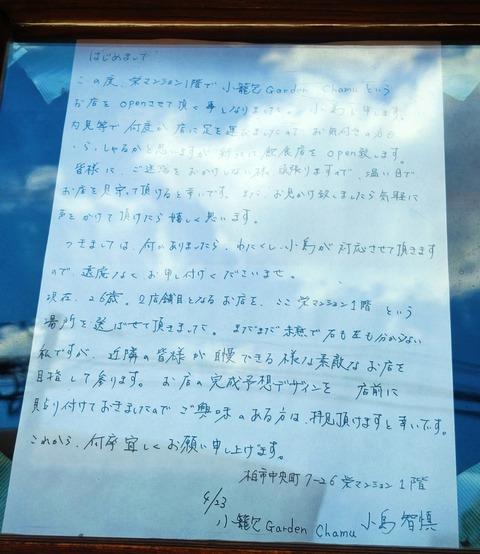 はじめまして
この度、栄マンション1階で小籠包Garden Chamuという
お店をopenさせて頂く事になりました。小島と申します。
内見等で何度か店に足を運びましたので、お気付きの方も
いらっしゃるかと思いますが新たに飲食店をopen致します。
皆様に、ご迷惑をおかけしない様、頑張りますので、温い目で
お店を見守って頂けると幸いです。また、お見かけ致しましたら気軽に
声をかけて頂けたら嬉しく思います。
つきましては、何かありましたら、わたくし、小島が対応させて頂きます
ので、遠慮なくお申し付けくださいませ。
現在、26歳。2店舗目となるお店を、ここ栄マンション1階という
場所を選ばせて頂きました。まだまだ未熟で右も左も分からない
私ですが、近隣の皆様が自慢できる様な素敵なお店を
目指して参ります。お店の完成予想デザインを店前に
貼り付けておきましたのでご興味のある方は、拝見頂けますと幸いです。
これから、何卒宜しくお願い申し上げます。
柏市中央町7-26栄マンション1階
4/23
小籠包Garden Chamu 小島智慎